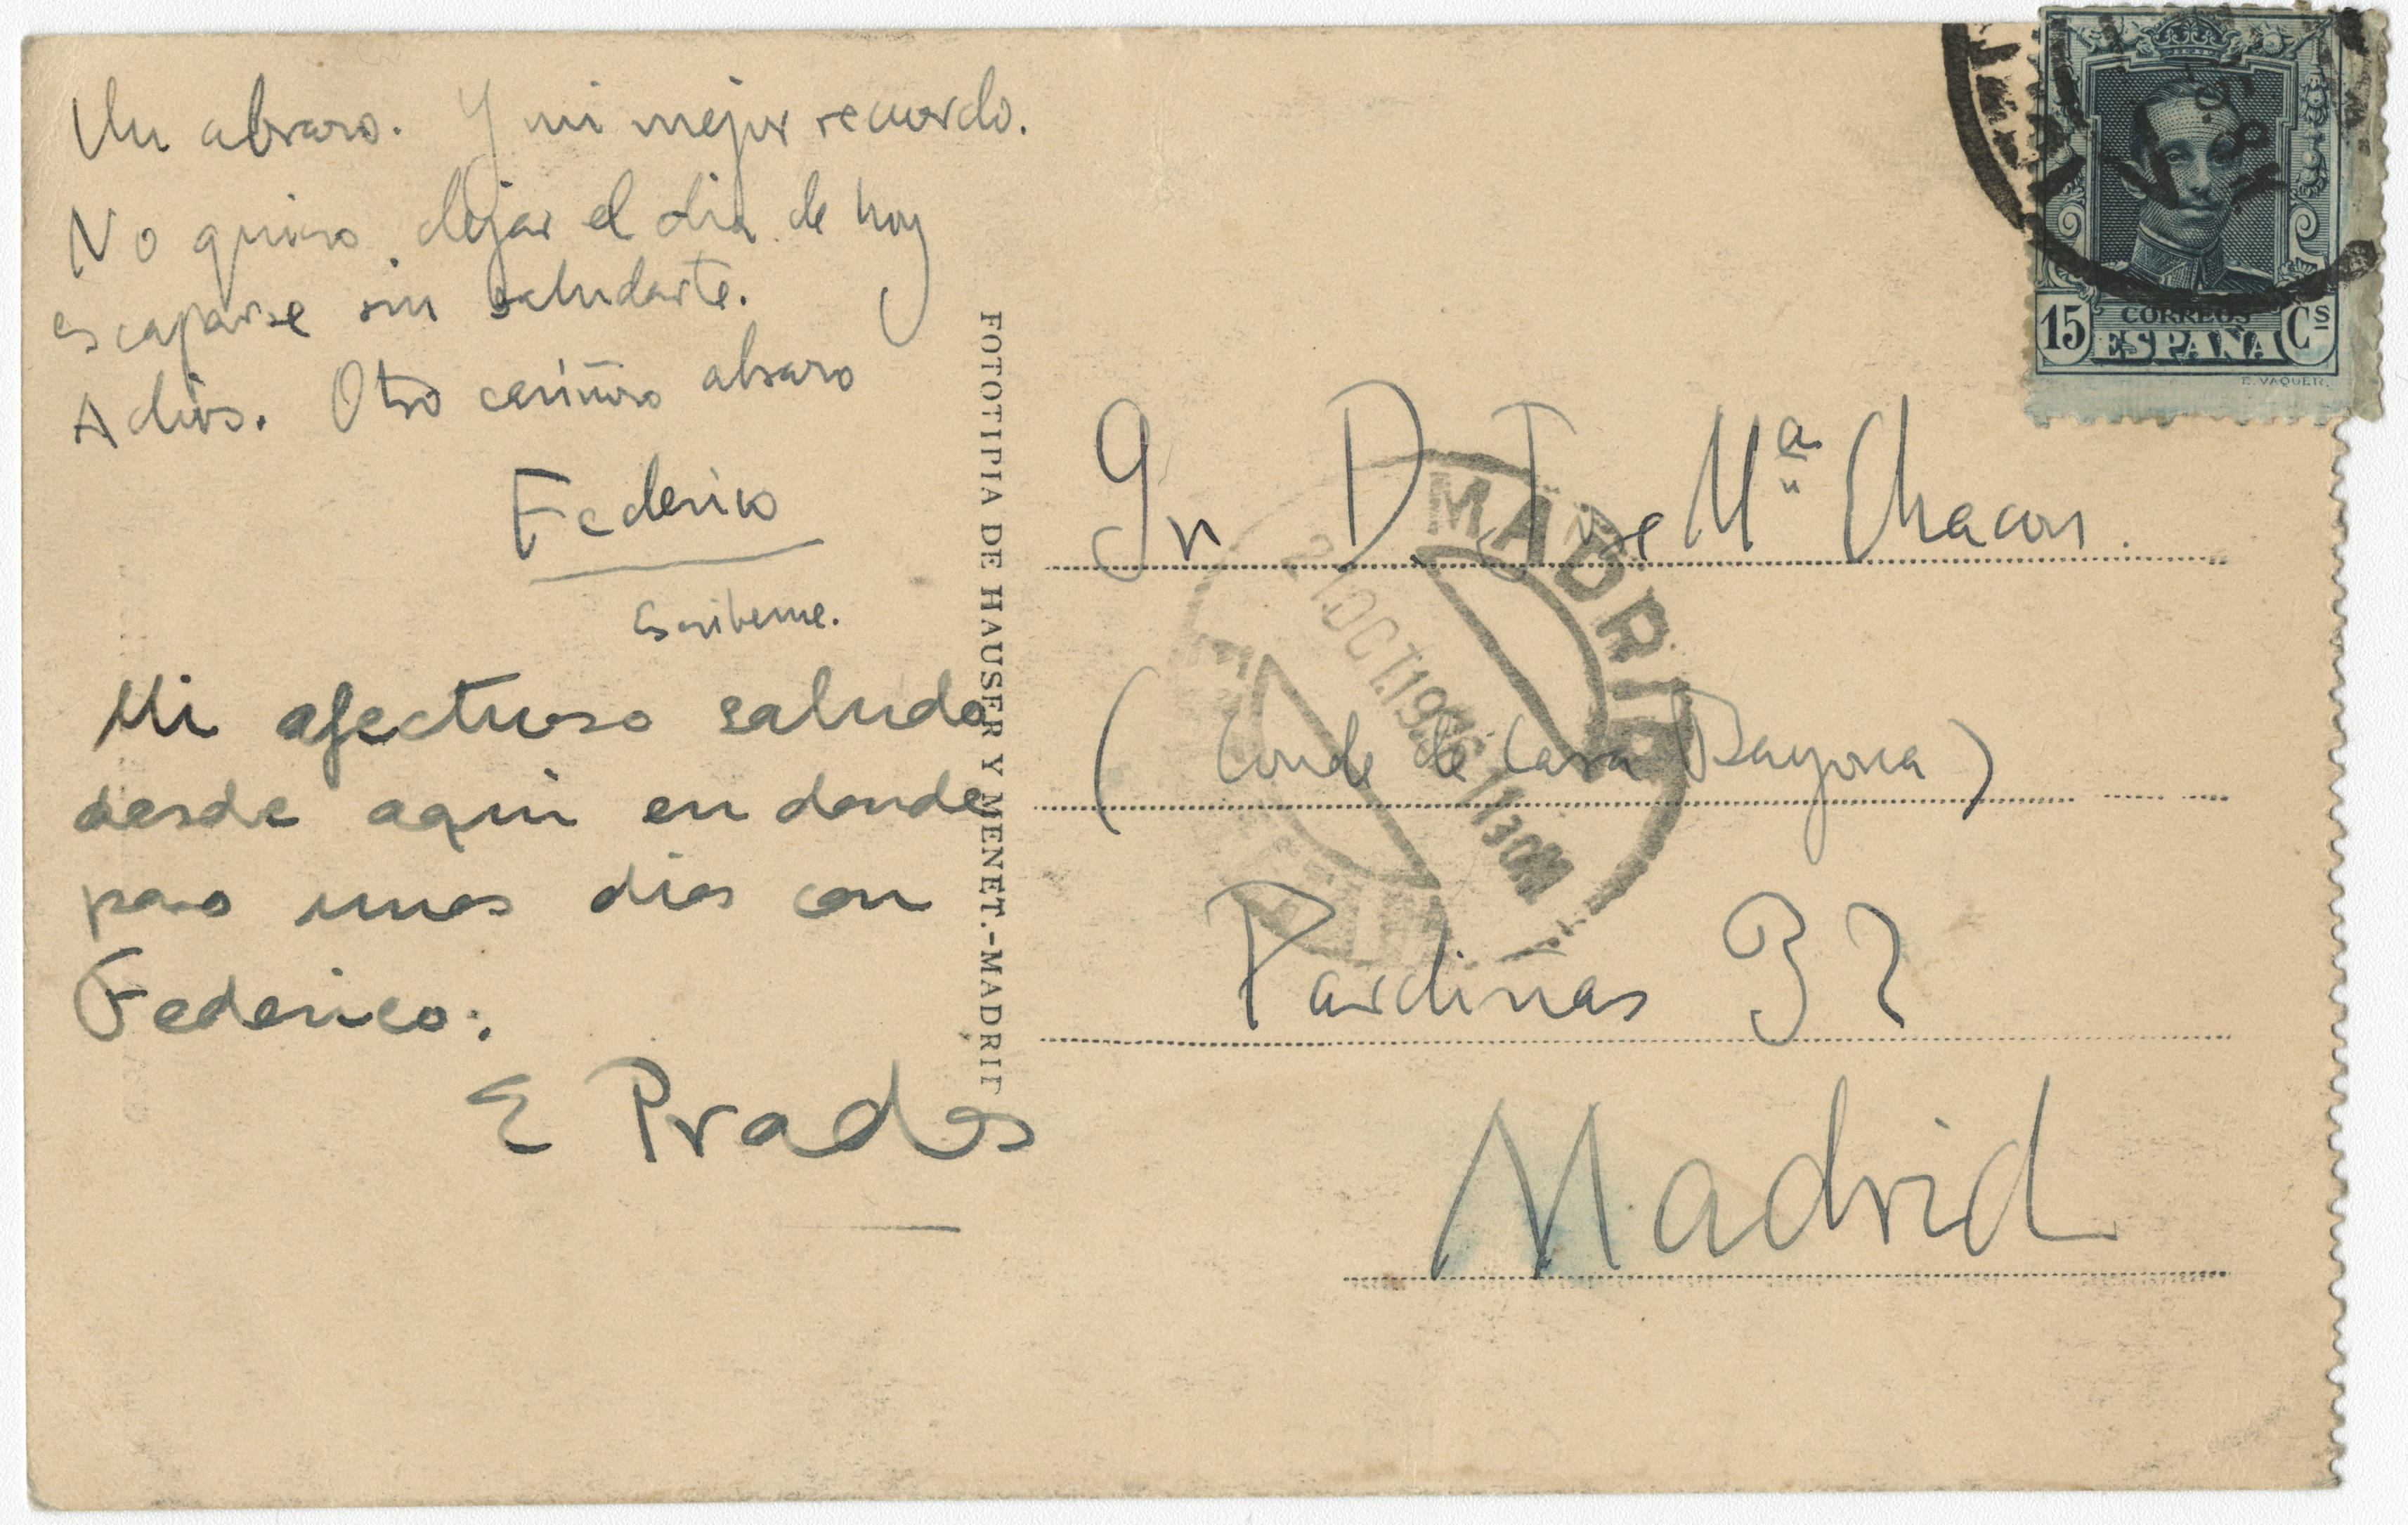 Un abrazo. Y mi mejor recuerdo.
No quiero dejar el dia de hoy
escaparse sin saludarte.
Adios. Otro cariñoso abrazo
Federico
Escribeme.
Mi afectuoso saludo
desde aqui en donde
paso unos dias con
Federico:
E Prados
FOTOTIPIA DE HAUSER Y MENET.-MADRID
15 CORREOS Cs
ESPAÑA
E. VAQUER.
Sr D. Jose Mª Chacon.
(Conde de Casa Bayona)
Pardiñas 32
Madrid
MADRID
21.OCT.1926